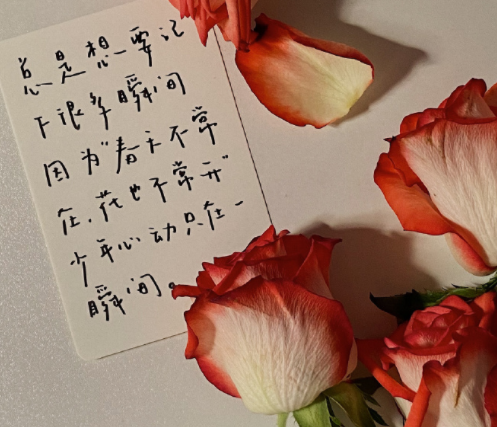 总是想要记
下很多瞬间
因为"春天不常
在，花也不常开"
少年心动只在一
瞬间。